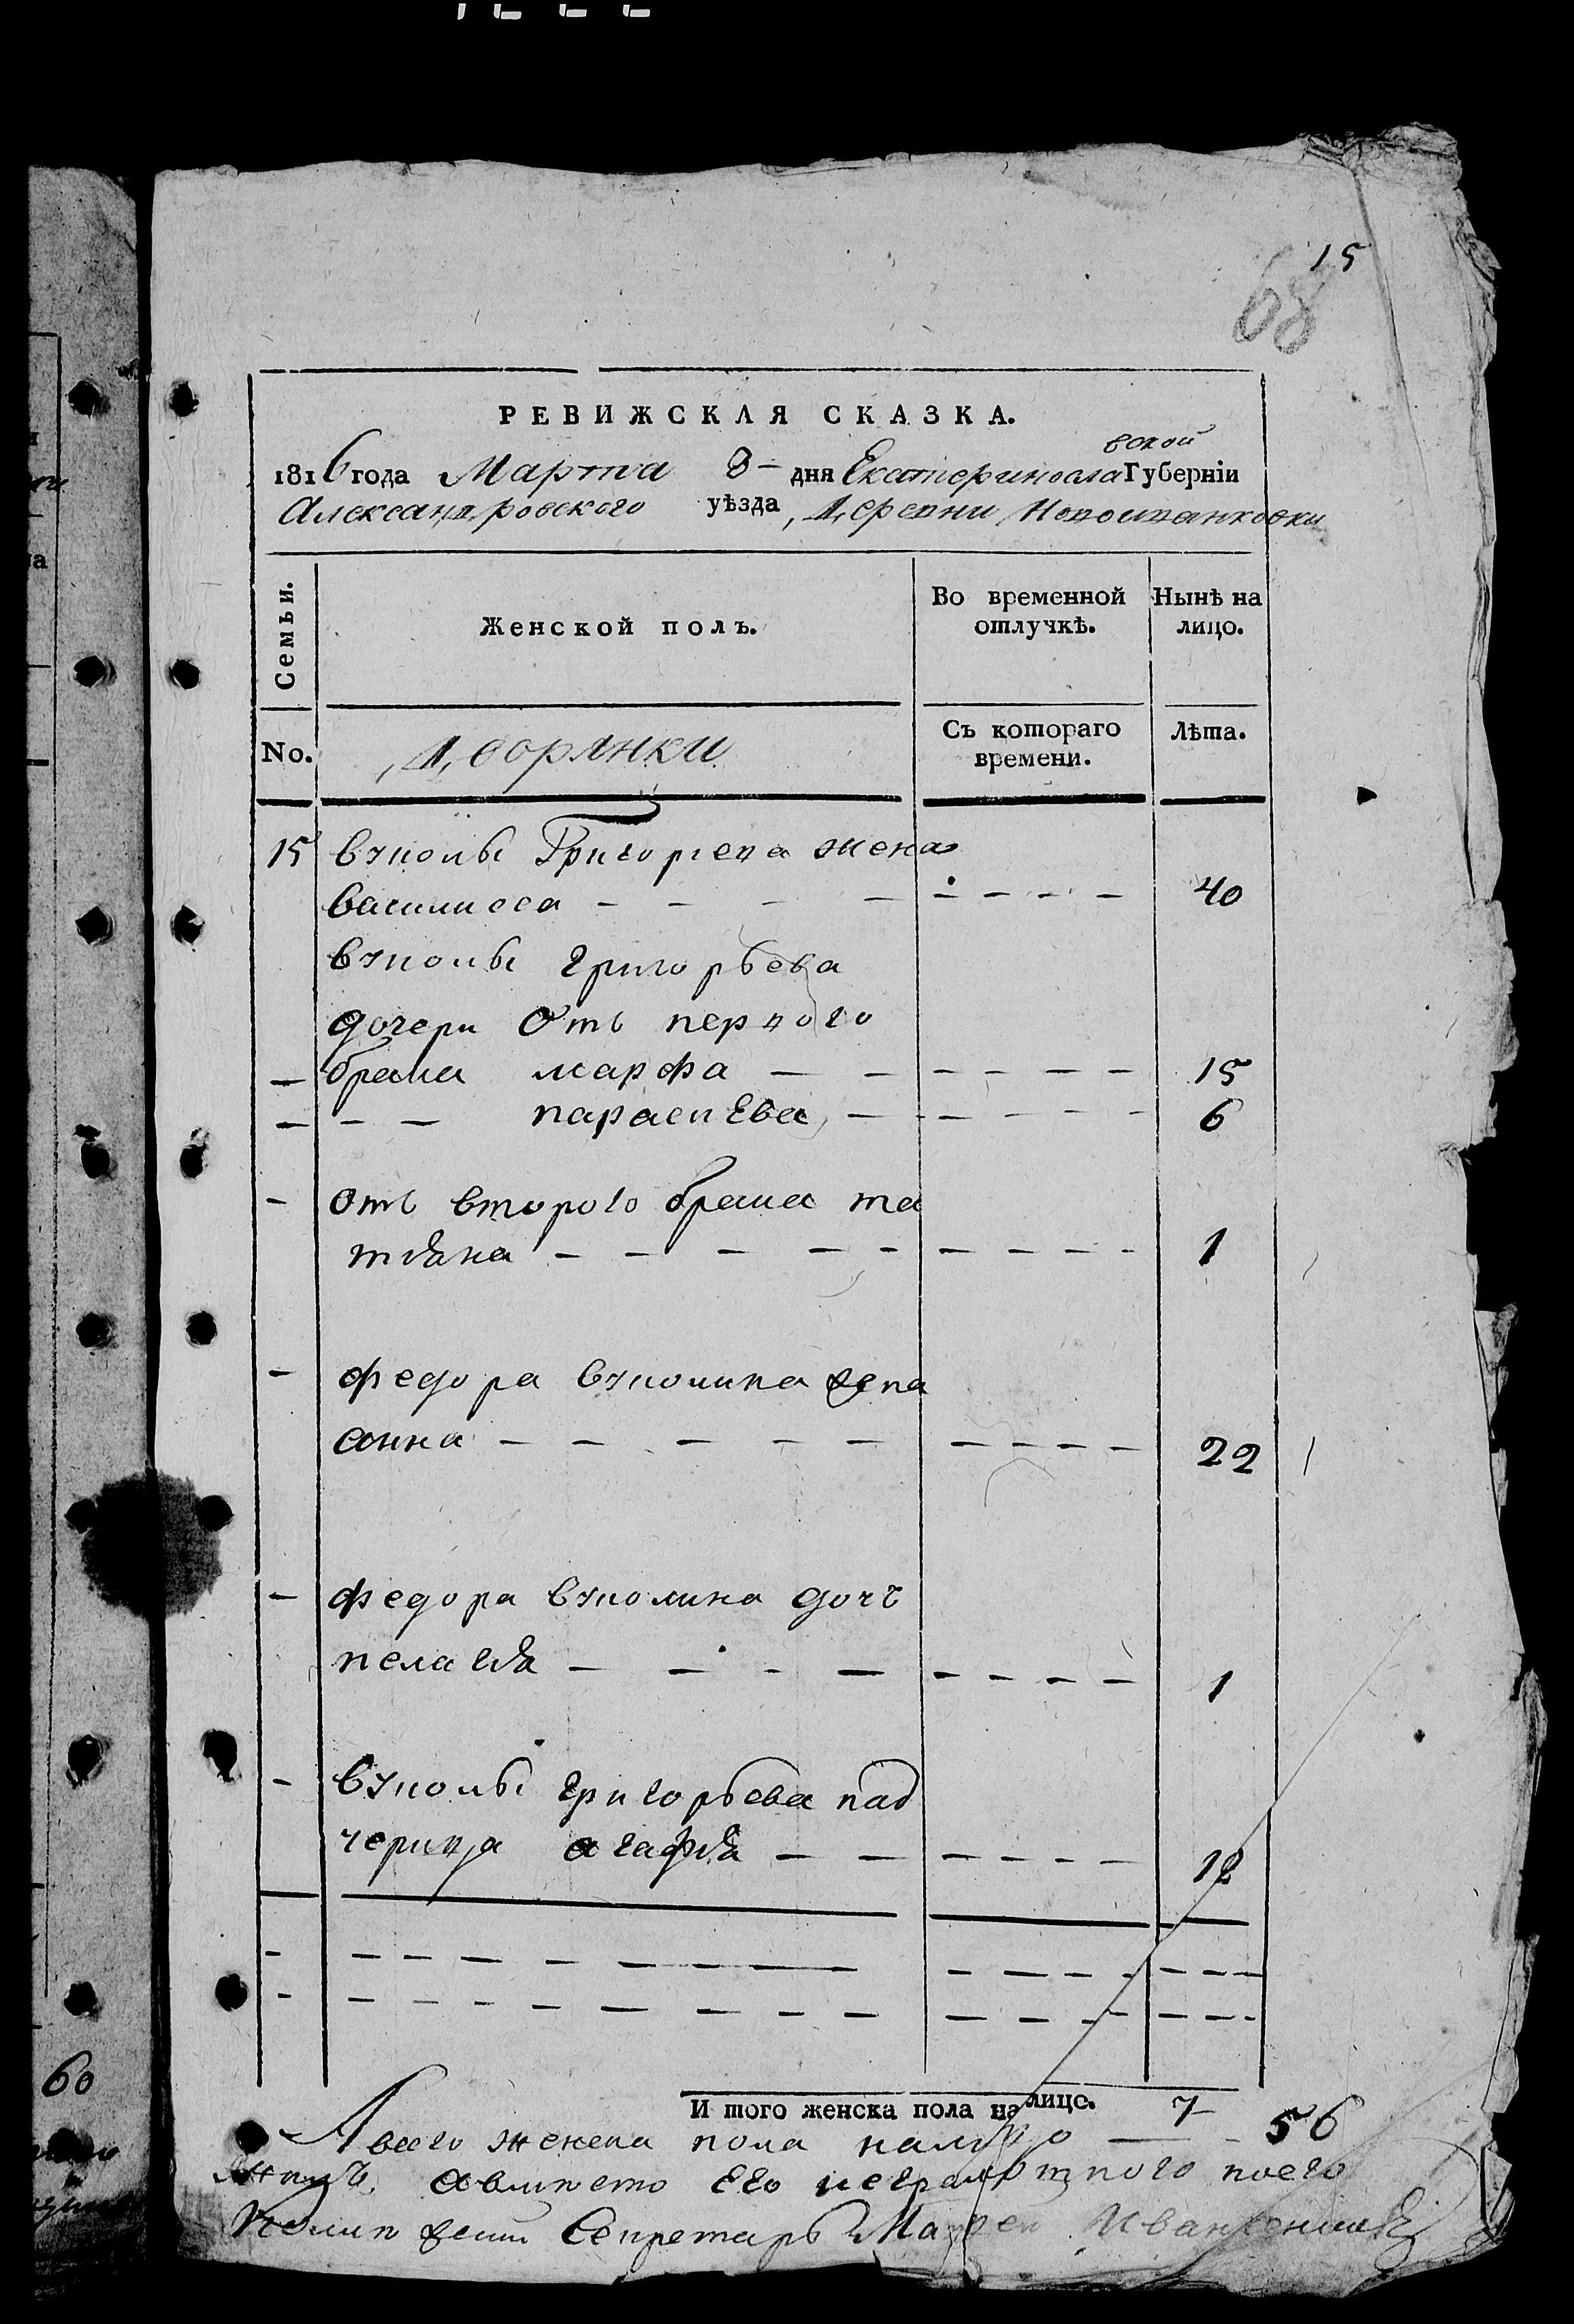 15
68
РЕВИЖСКАЯ СКАЗКА.
1816 года Марта 8 дня Екатеринославской Губернiи
Александровского уѣзда, Деревни
Семьи. Женской полъ. Во временной отлучкѣ. Нынѣ на лицо.
No. Дворянки Съ котораго времени. Лѣта.
15 вуколы Григорьева жена
василиса - - - - - - - - 40
вуколы григорьева
дочери Отъ первого
- брака марфа - - - - - - - 15
- - - параскЕва - - - - - - 6
- Отъ второго брака та
тияна - - - - - - - - - 1
- федора вуколина жена
анна - - - - - - - - - 22
- федора вуколина дочь
пелагия - - - - - - - - 1
- вуколы григорьева пад
черица агафия - - - - - - 12
И того женска пола на лицо. 7
всего женска пола налицо - - 56
а вместо Его неграмотного
Секретарь Ма
60